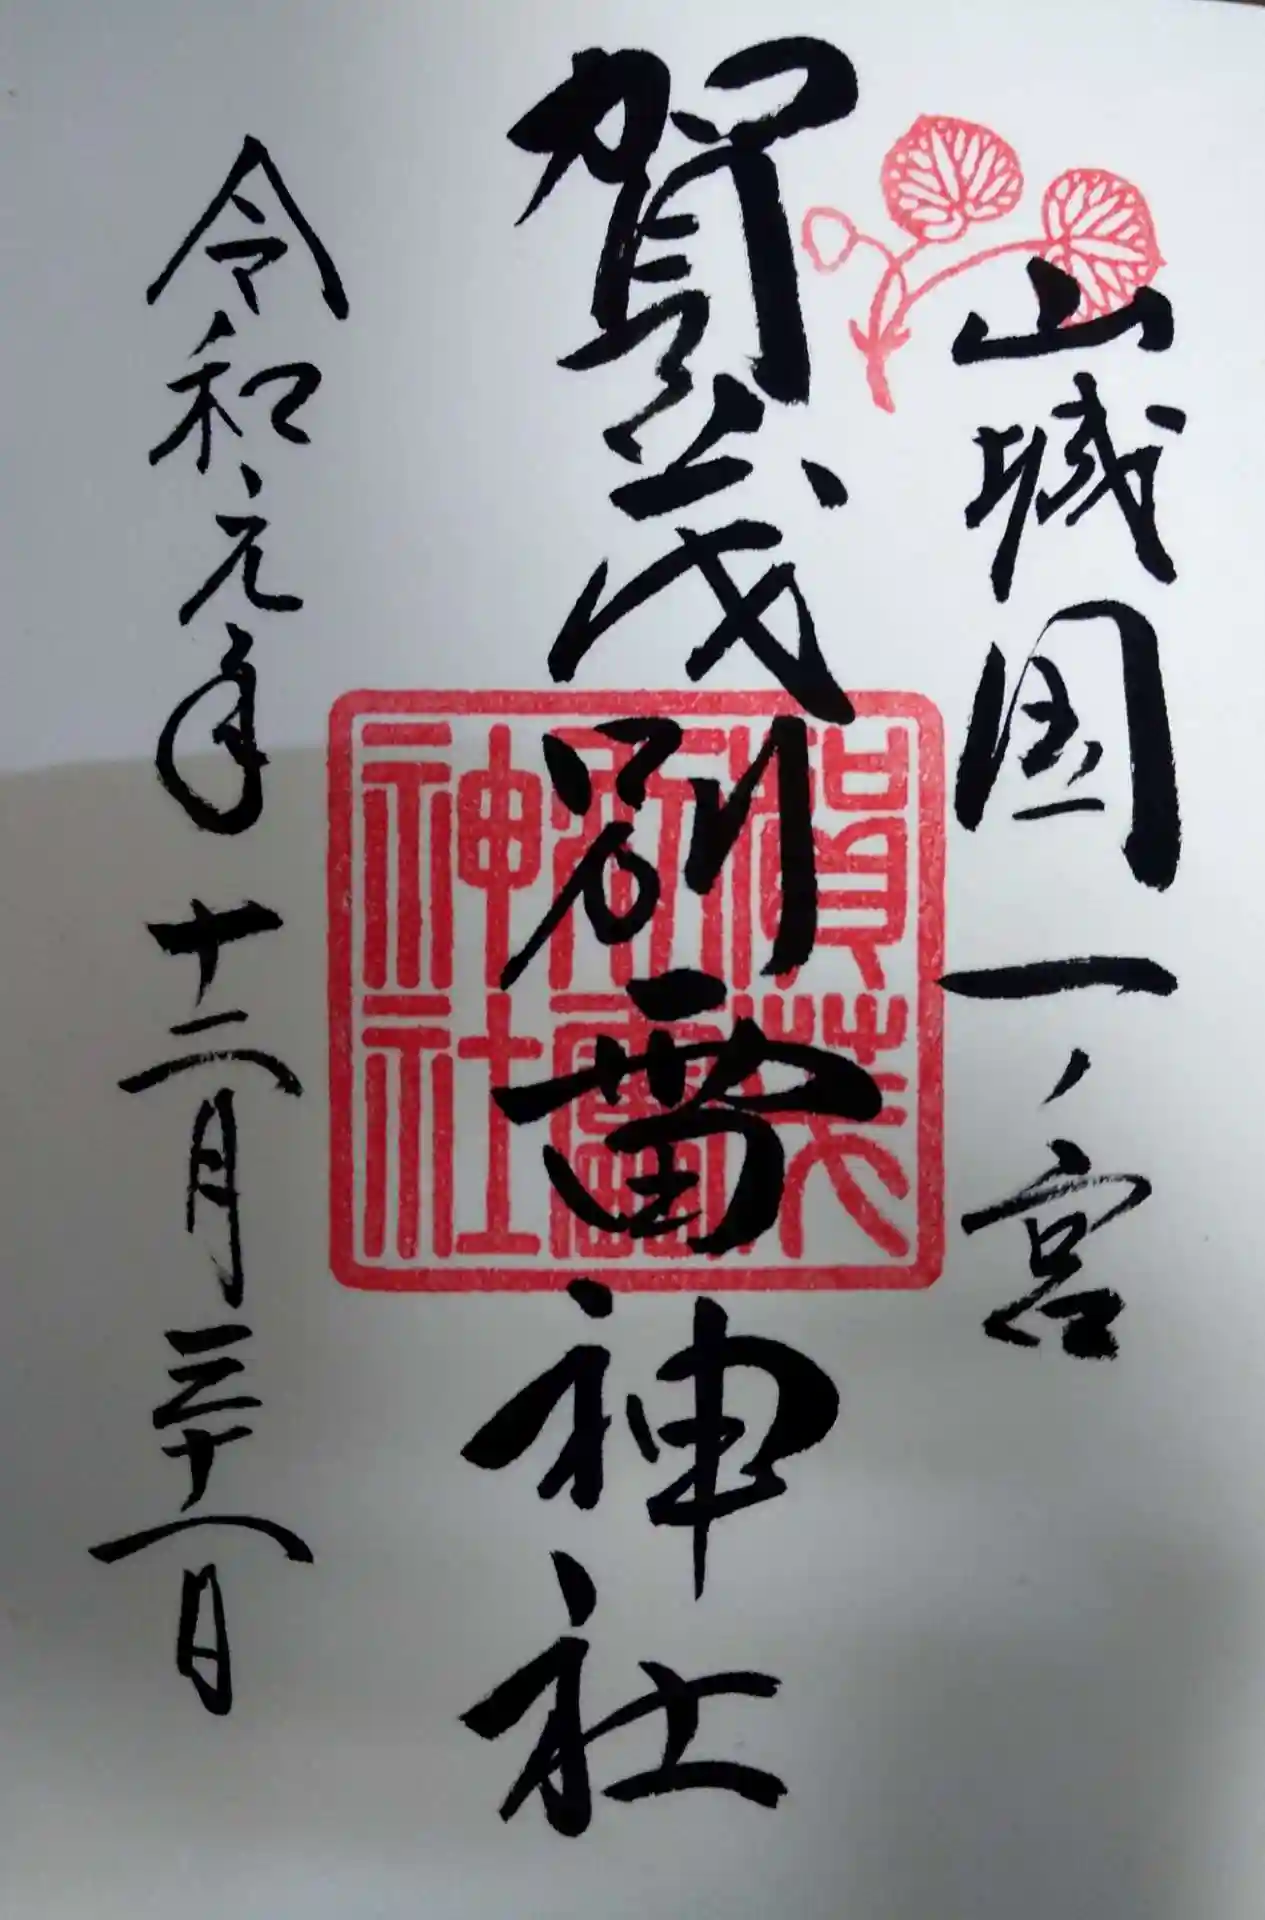 山城国一ノ宮
賀茂別雷神社
令和元年十二月三十一日
賀茂
別雷
神社